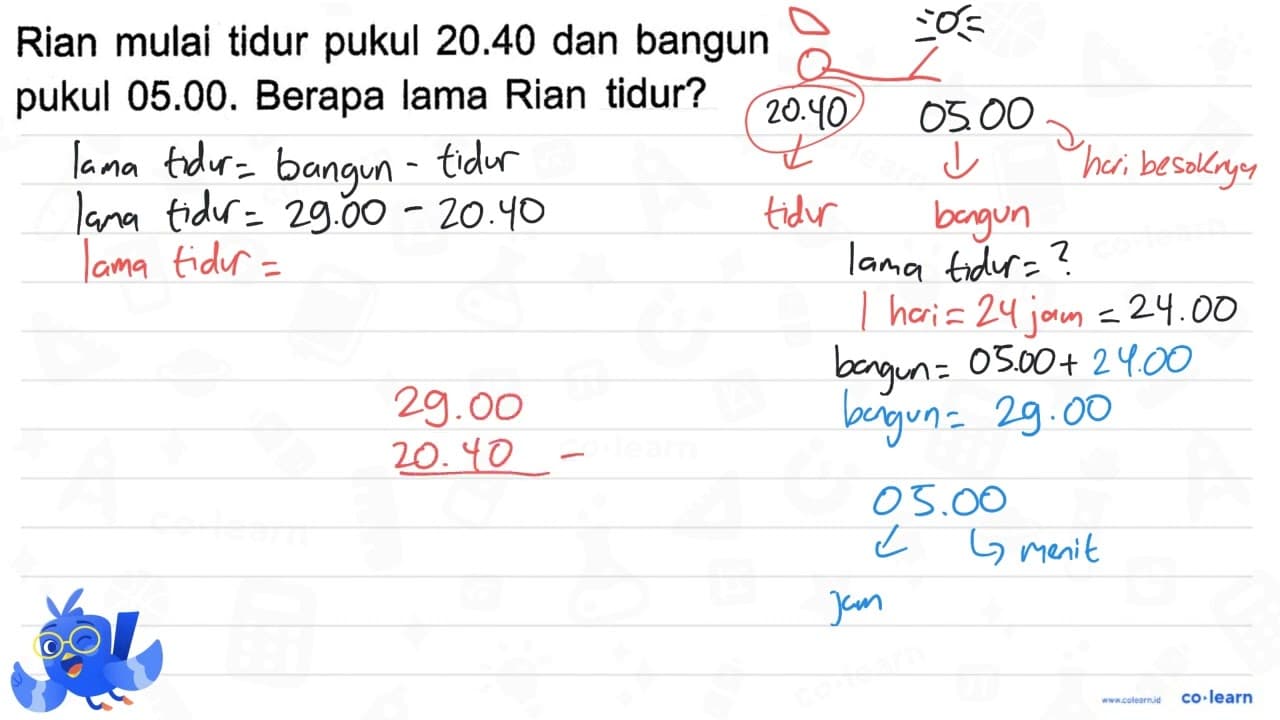 Rian mulai tidur pukul 20.40 dan bangun
pukul 05.00. Berapa lama Rian tidur?
lama tidur = bangun - tidur
lama tidur = 29.00 - 20.40
lama tidur =
29.00
20.40 -
20.40 05.00 hari besoknya
tidur bangun
lama tidur = ?
1 hari = 24 jam = 24.00
bangun = 05.00 + 24.00
bangun = 29.00
05.00
menit
jam
www.colearn.id co·learn